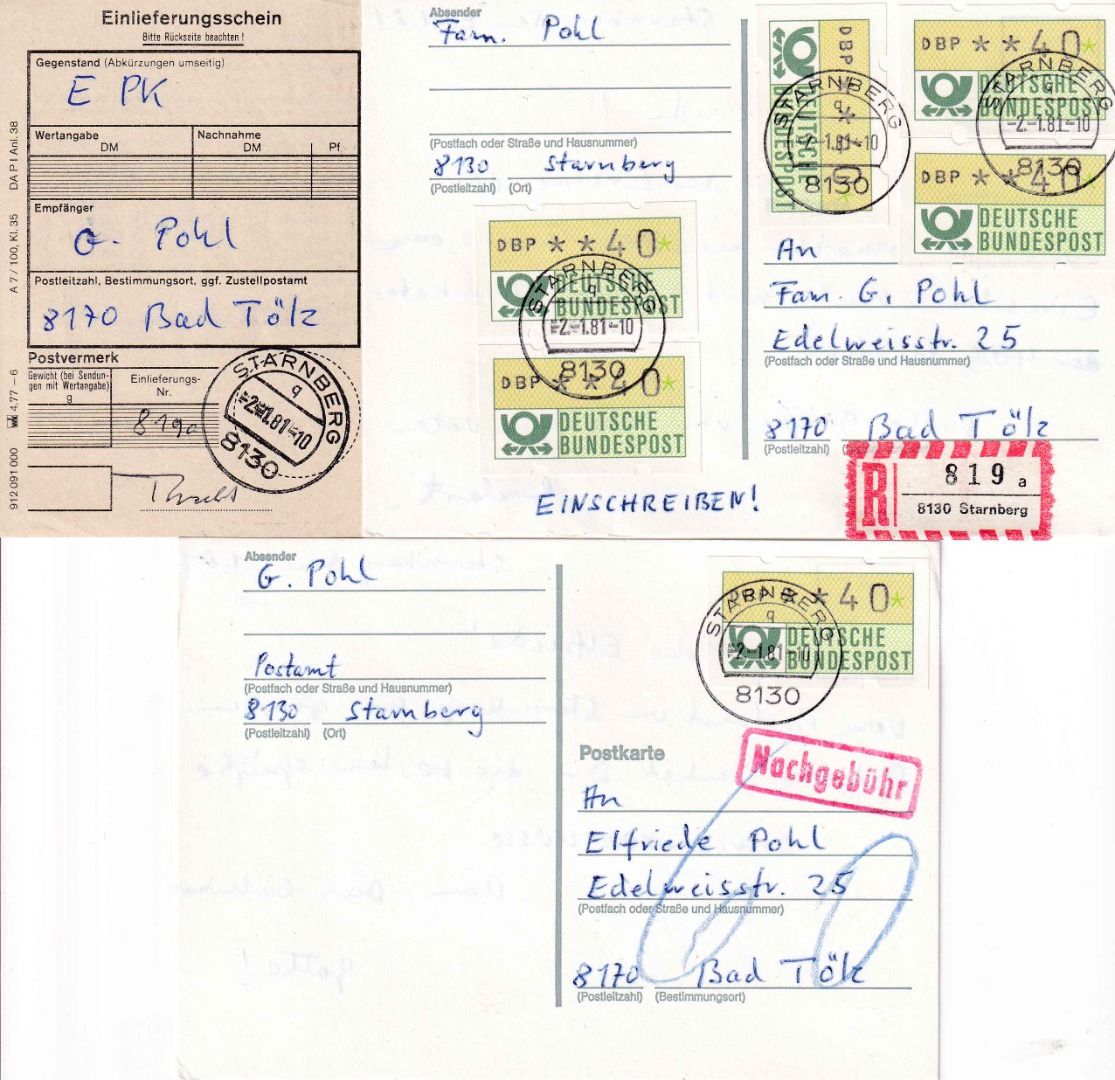 Einlieferungsschein
Bitte Rückseite beachten!
Gegenstand (Abkürzungen umseitig)
E PK
Wertangabe
DM
Nachnahme
DM
Pf
Empfänger
G. Pohl
Postleitzahl, Bestimmungsort, ggf. Zustellpostamt
8170 Bad Tölz
Postvermerk
Gewicht (bei Sendun-
gen mit Wertangabe)
g
Einlieferungs-
Nr.
819a
STARNBERG
q
-2.-1.81-10
8130
912 091 000
4.77 – 6
A 7 / 100, Kl. 35
DA P I Anl. 38
Absender
Fam. Pohl
(Postfach oder Straße und Hausnummer)
8130 Starnberg
(Postleitzahl) (Ort)
DBP **40*
DEUTSCHE
BUNDESPOST
DBP **40*
DEUTSCHE
BUNDESPOST
STARNBERG
q
-2.-1.81-10
8130
EINSCHREIBEN!
DBP
DEUTSCHE
BUNDESPOST
STARNBERG
q
-2.-1.81-10
8130
DBP **40*
DEUTSCHE
BUNDESPOST
DBP **40*
DEUTSCHE
BUNDESPOST
STARNBERG
q
-2.-1.81-10
8130
An
Fam. G. Pohl
Edelweisstr. 25
(Postfach oder Straße und Hausnummer)
8170 Bad Tölz
(Postleitzahl)
R
819 a
8130 Starnberg
Absender
G. Pohl
Postamt
(Postfach oder Straße und Hausnummer)
8130 Starnberg
(Postleitzahl) (Ort)
DBP **40*
DEUTSCHE
BUNDESPOST
STARNBERG
q
-2.-1.81-10
8130
Postkarte
Nachgebühr
An
Elfriede Pohl
Edelweisstr. 25
(Postfach oder Straße und Hausnummer)
8170 Bad Tölz
(Postleitzahl) (Bestimmungsort)